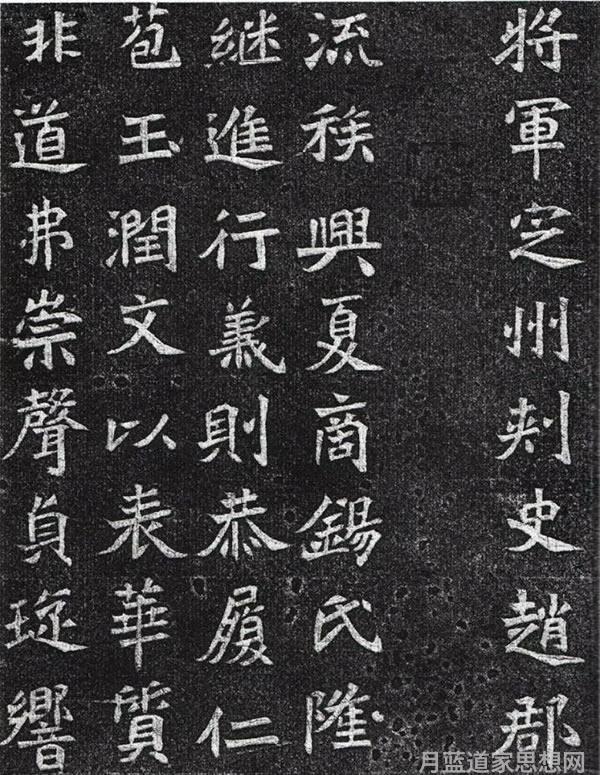 將軍定州刾史趙郡
流稱興夏商錫氏隆
継進行義則恭履仁
苞玉潤文以表華質
非道弗崇聲貞琁響
月蓝道家思想网